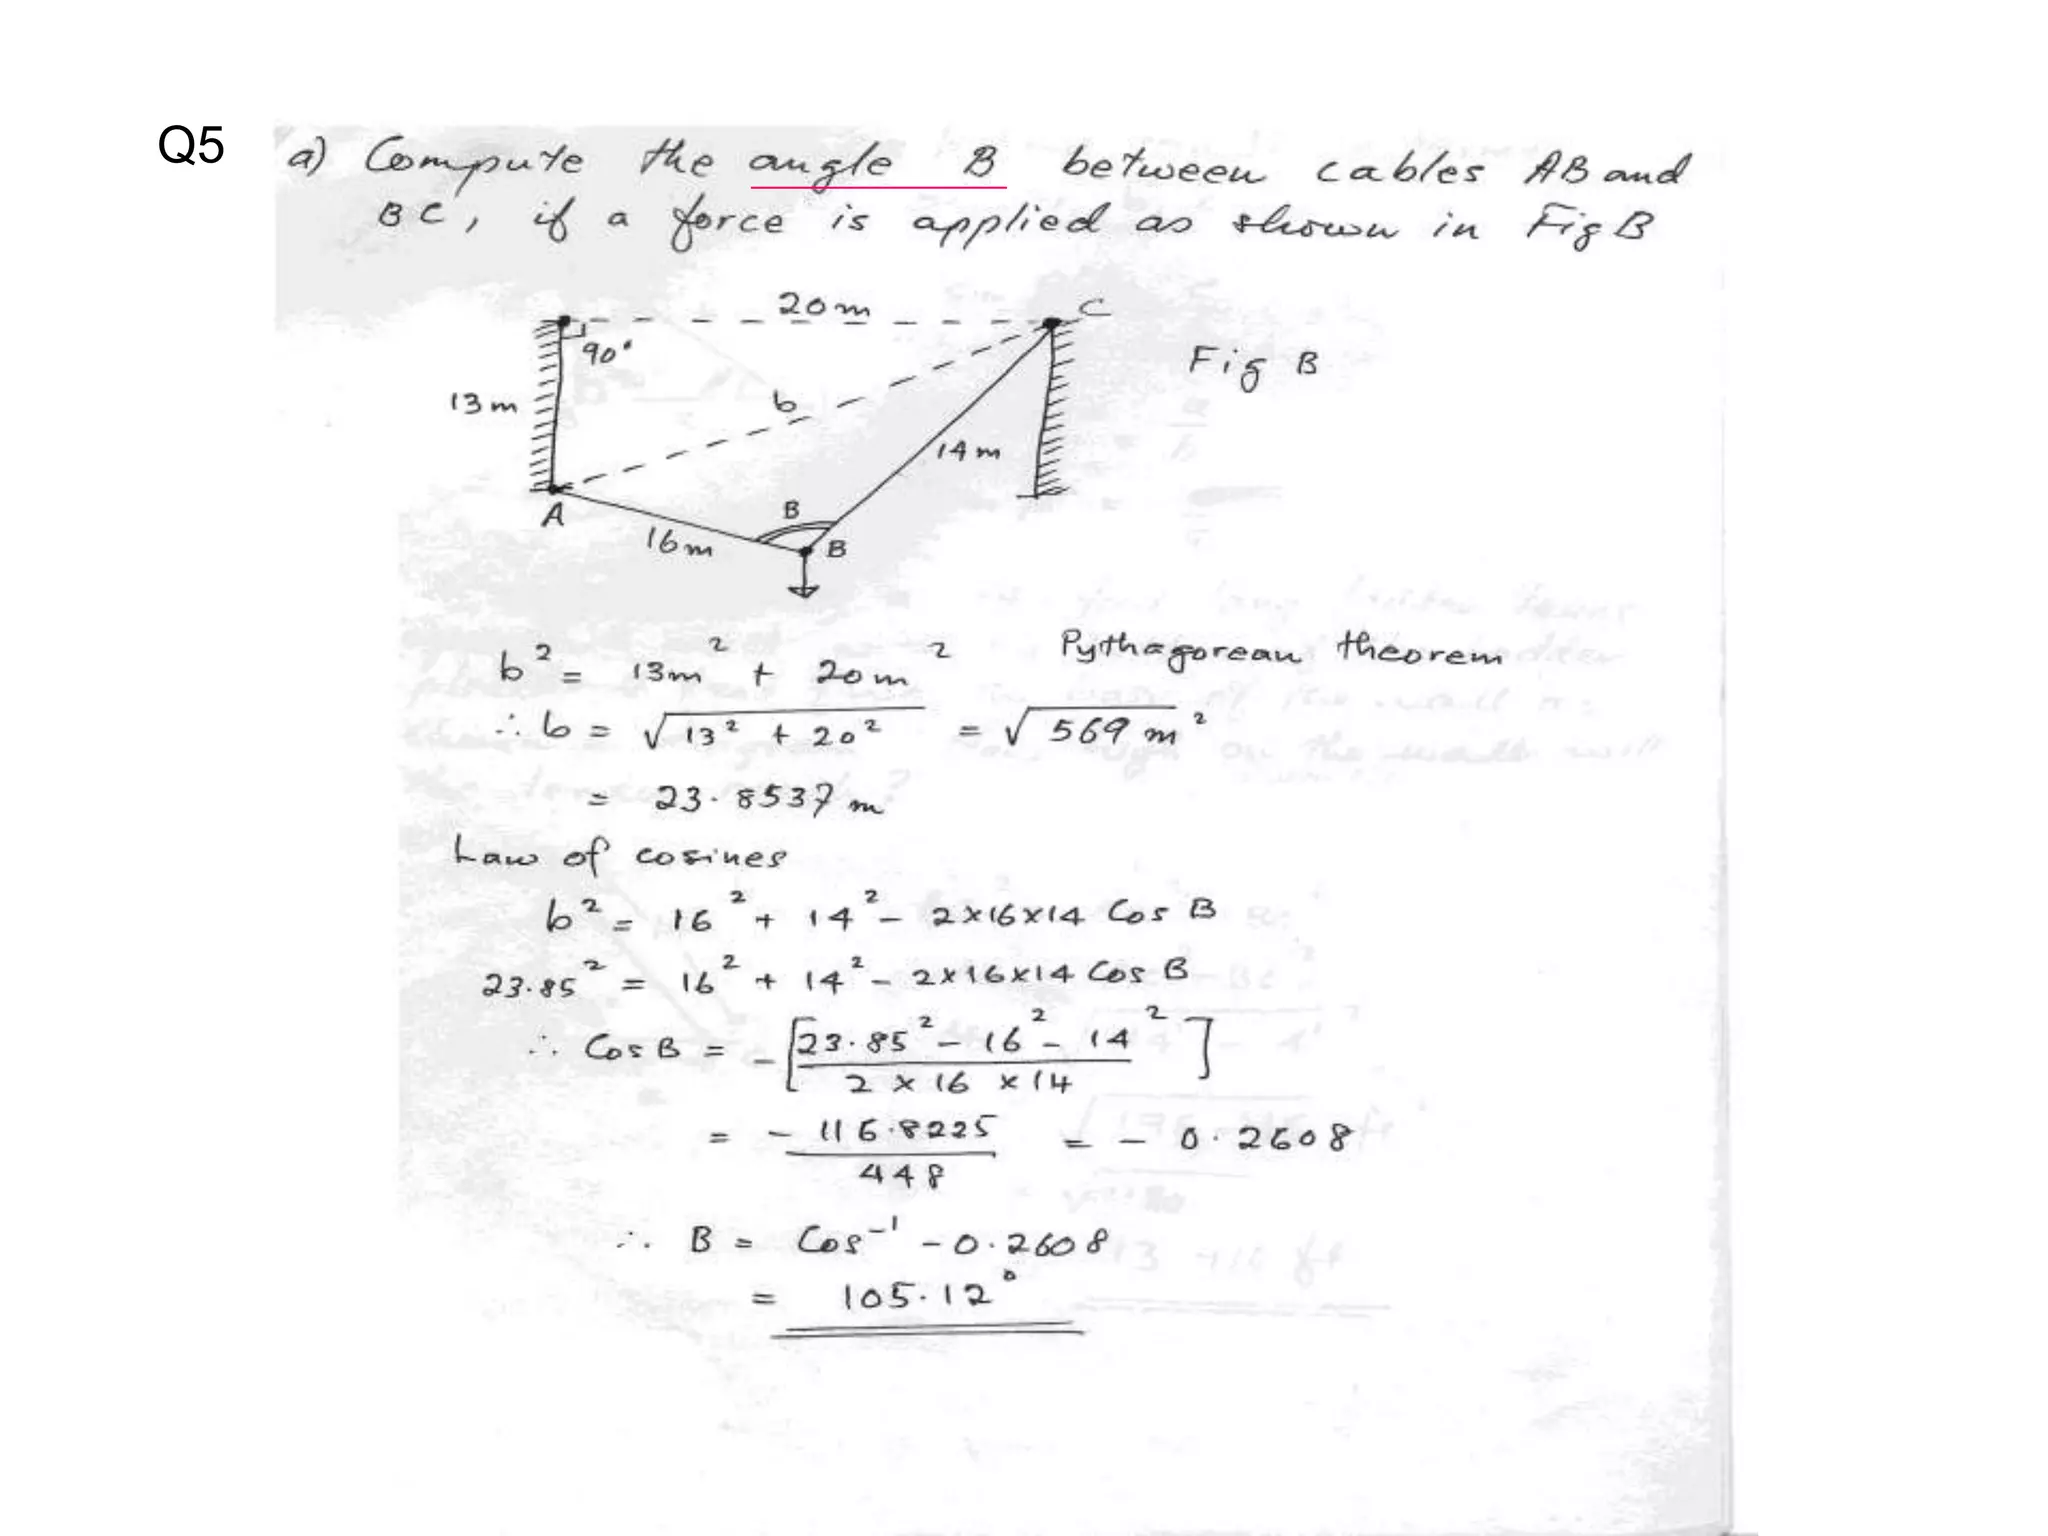 Q5
a) Compute the angle B between cables AB and
BC, if a force is applied as shown in Fig B
20m
C
90°
Fig B
13m
b
14m
A
B
16m
B
b² = 13m² + 20m² Pythagorean theorem
∴ b = √13² + 20² = √569 m²
= 23.8537 m
Law of cosines
b² = 16² + 14² - 2×16×14 Cos B
23.85² = 16² + 14² - 2×16×14 Cos B
∴ Cos B = -[23.85² - 16² - 14²]
2 × 16 × 14
= - 116.8225 = - 0.2608
448
∴ B = Cos⁻¹ -0.2608
= 105.12°